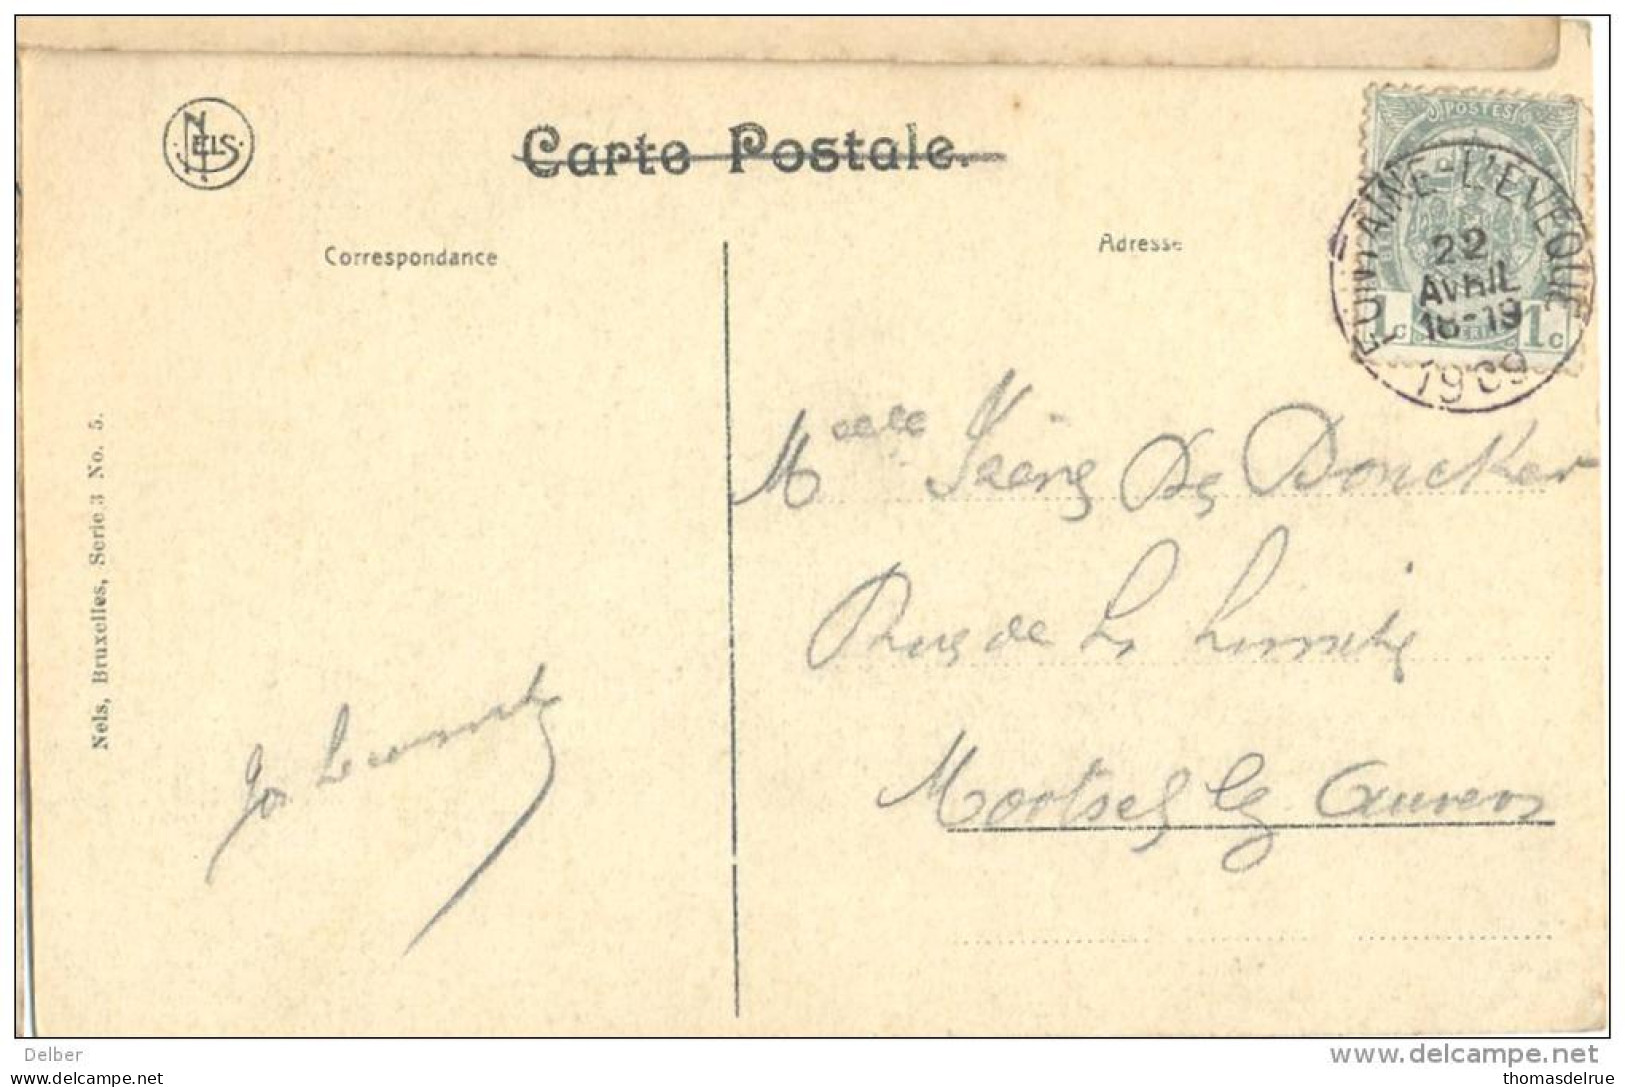 NELS
Carte Postale.
Correspondance
Adresse
POSTES
FONTAINE-L'EVEQUE
22
AVRIL
18-19
1909
1c 1c
Nels, Bruxelles, Serie 3 No. 5.
Melle Irène De Doncker
Rue de La Limite
Mortsel lez Anvers
Jos
Delber
delcampe
www.delcampe.net
thomasdelrue